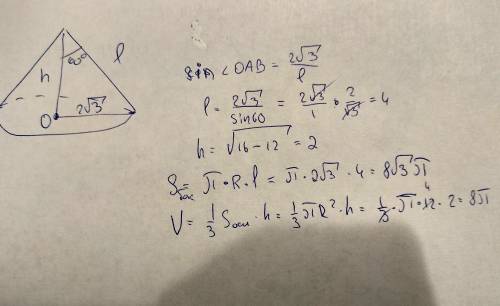 h 60° l
O 2√3
sin <OAB = 2√3/l
l = 2√3/sin60 = 2√3/1 · 2/√3 = 4
h = √16-12 = 2
Sбок = π · R · l = π · 2√3 · 4 = 8√3π
V = 1/3 Sосн · h = 1/3 πR² · h = 1/3 · π · 12 4 · 2 = 8π